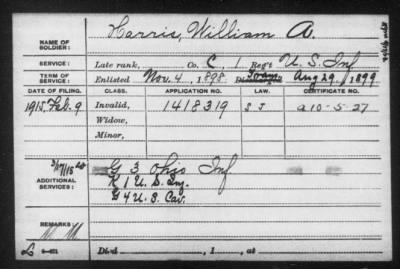 NAME OF SOLDIER: Harris, William A.
SERVICE: Late rank, Co. C, 1 Reg't U. S. Inf
TERM OF SERVICE: Enlisted Nov. 4, 1898. Aug 29, 1899
DATE OF FILING. CLASS. APPLICATION NO. LAW. CERTIFICATE NO.
1915, Feb. 9 Invalid, 1418319 a 10-5-27
Widow,
Minor,
ADDITIONAL SERVICES: G 3 Ohio Inf
K 1 U. S. Inf.
G 4 U. S. Cav.
REMARKS:
Died , 1 , at